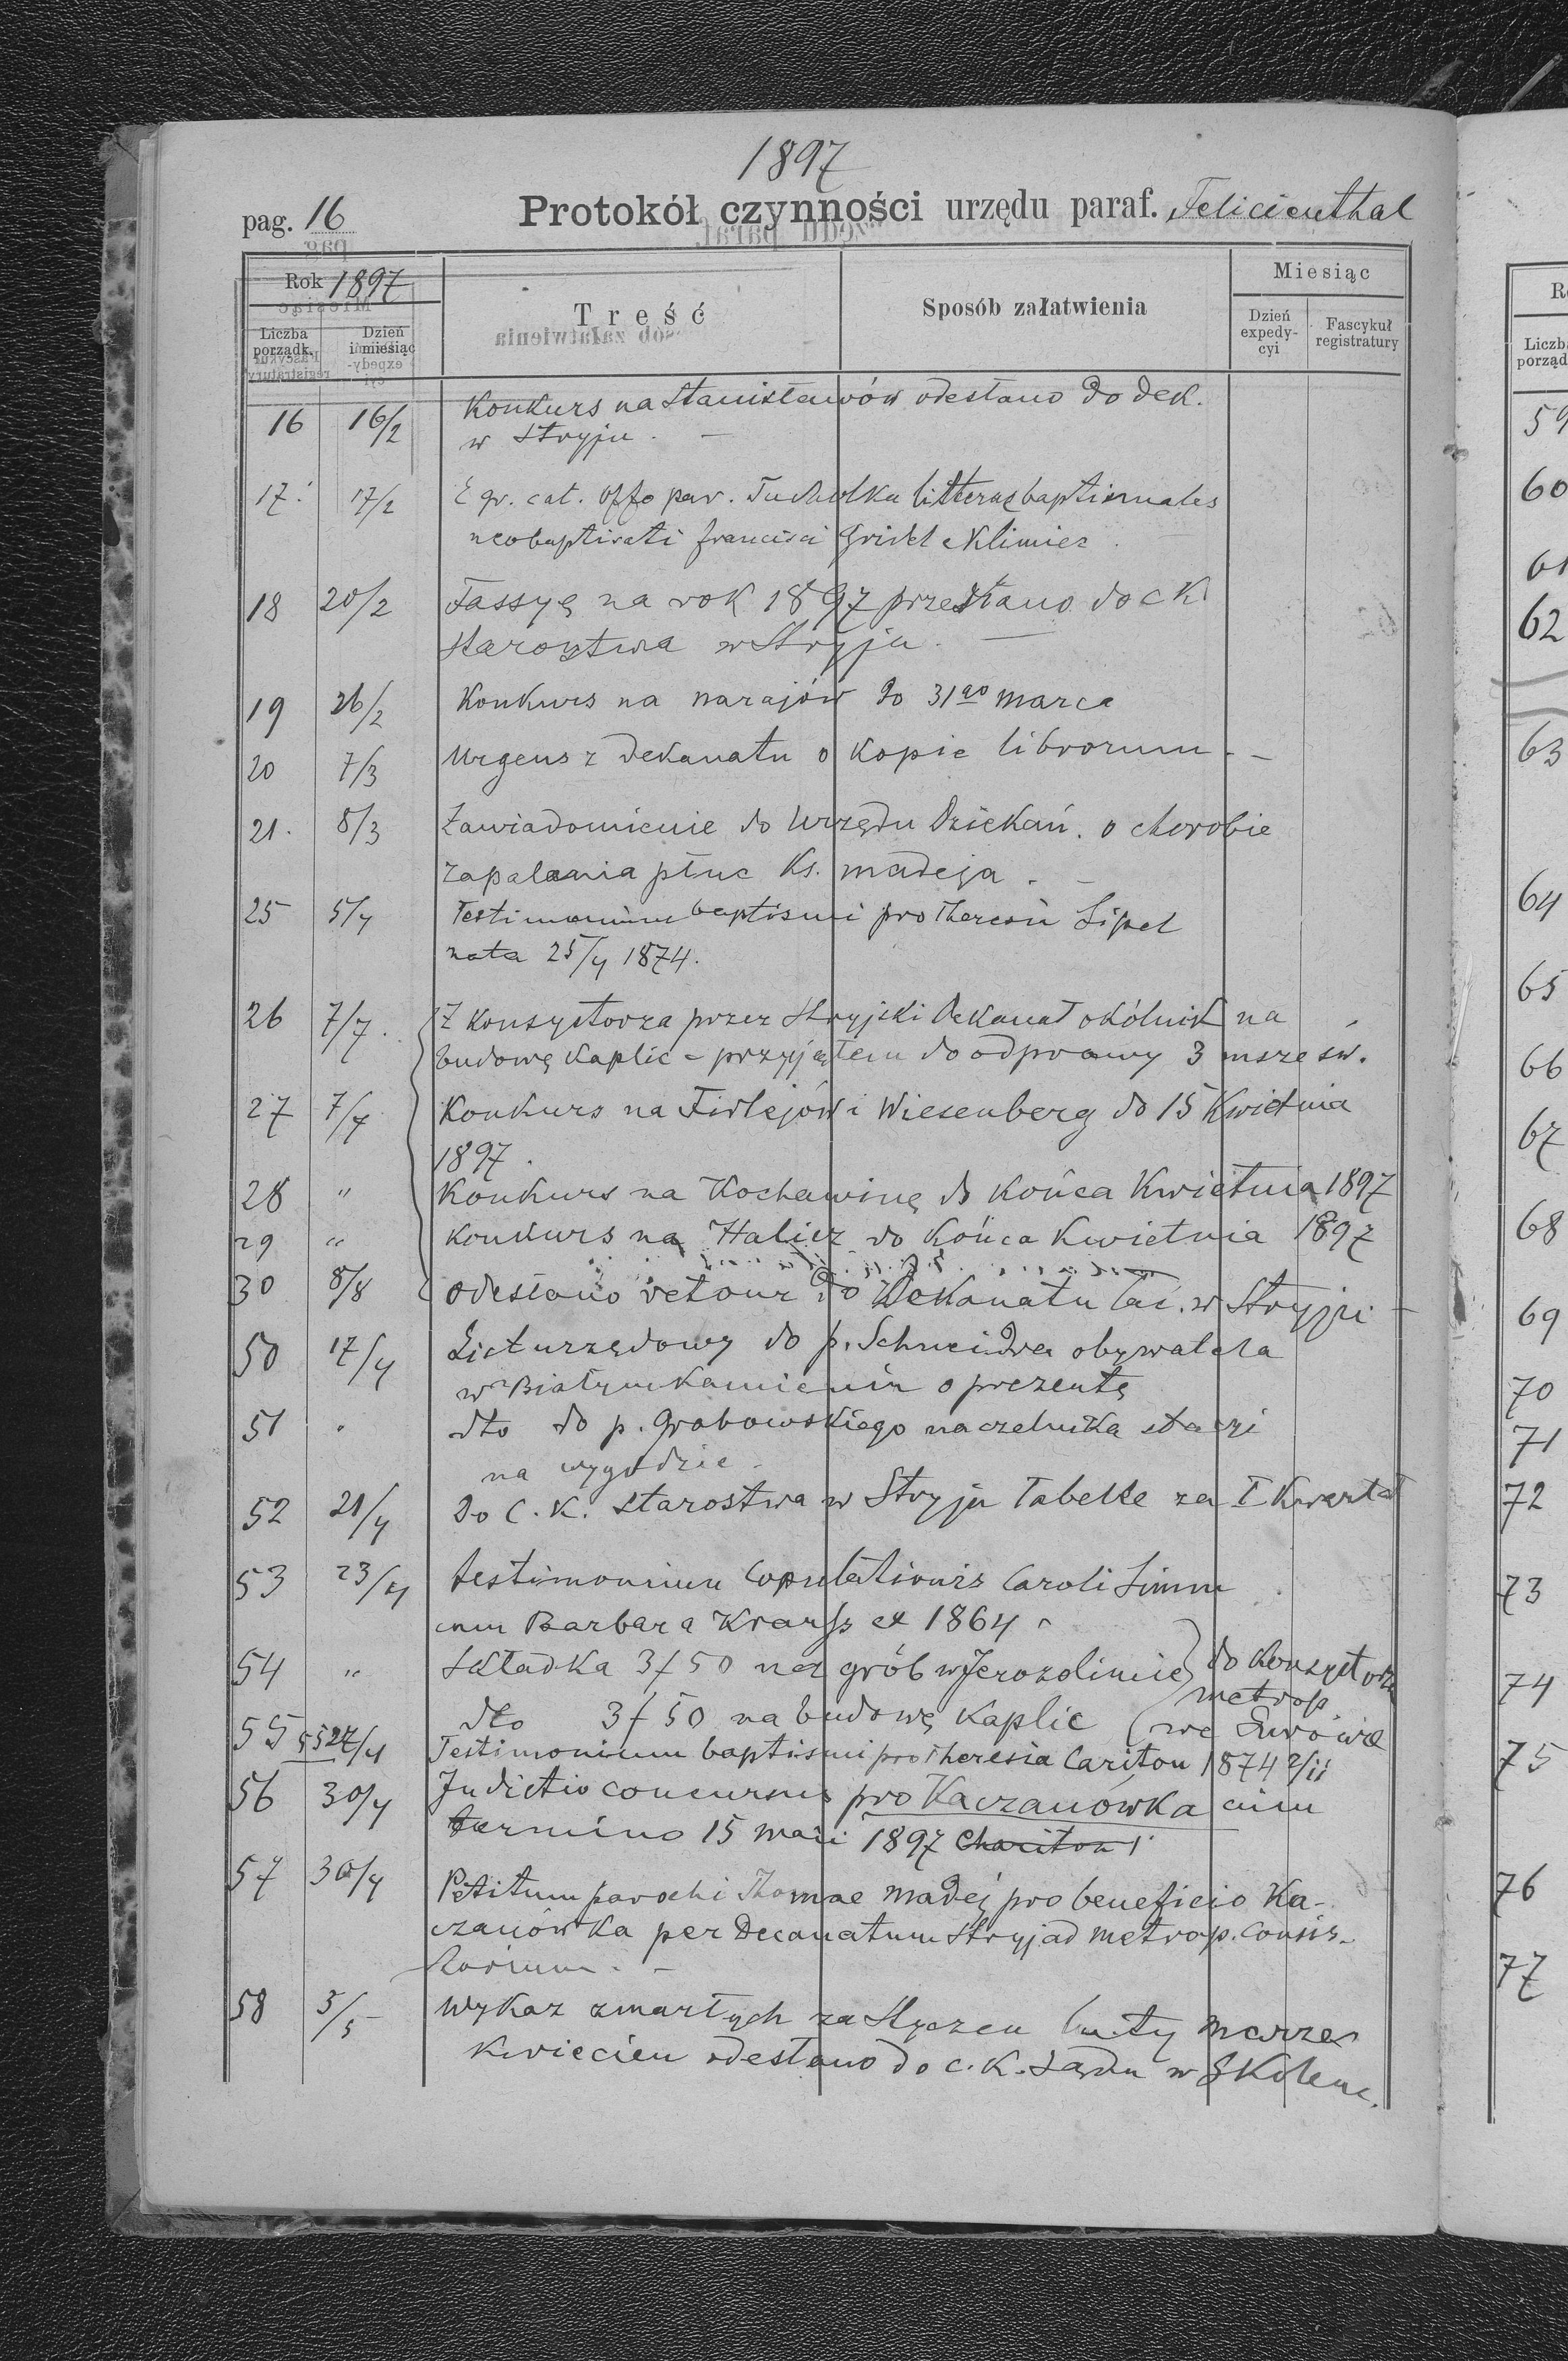 1897
pag. 16 Protokół czynności urzędu paraf. Felicienthal
Rok 1897
Miesiąc
Treść
Sposób załatwienia
Liczba porządk.
Dzień i miesiąc
Dzień expedy-cyi
Fascykuł registratury
16 16/2 Konkurs na Stanisławów odesłano do dek.
w Stryju. —
17. 17/2 E gr. cat. offo par. Tucholka litteras baptismales
neobaptisati Francisci Gridel Klimiec
18 20/2 Fassyę na rok 1897 przesłano do c K
starostwa w Stryju. —
19 26/2 Konkurs na Narajów do 31go Marca
20 7/3 Urgens z dekanatu o Kopie librorum. —
21. 8/3 Zawiadomienie do Urzędu Dziekań. o chorobie
zapalenia płuc Ks. Madeja. —
25 5/4 Testimonium baptismi pro Theresia Lipel
nata 25/4 1874.
26 7/7. Z Konsystorza przez Stryjski Dekanat okólnik na
budowę Kaplic – przyjąłem do odprawy 3 msze św.
27 7/4 Konkurs na Firlejów i Wiesenberg do 15 Kwietnia
1897.
28 " Konkurs na Kochawinę do Końca Kwietnia 1897
29 " Konkurs na Halicz do Końca Kwietnia 1897
30 8/8 Odesłano retour do Dekanatu łac. w Stryju. —
50 17/4 List urzędowy do p. Schneidra obywatela
w Białymkamieniu o prezentę
51 " dto do p. Grabowskiego naczelnika stacji
na wygodzie.
52 21/4 Do C. K. starostwa w Stryju Tabelle za I Kwartał
53 23/4 testimonium copulationis Caroli Simm
cum Barbara Krauss ex 1864
54 " Składka 3f 50 na grób w Jerozolimie do Konsystorza
metrop
dto 3f 50 na budowę Kaplic we Lwowie
55 55 27/4 Testimonium baptismi pro Theresia Cariton 1874 2/11
56 30/4 Indictio concursus pro Kaczanówka cum
termino 15 maii 1897 Chariton
57 30/4 Petitum parochi Thomae Madej pro beneficio Ka-
czanówka per Decanatum Stryj ad metrop. Consis-
torium. —
58 3/5 Wykaz zmarłych za Styczeń luty marzec
Kwiecień odesłano do c. K. Sądu w Skolem.
59
60
61
62
63
64
65
66
67
68
69
70
71
72
73
74
75
76
77